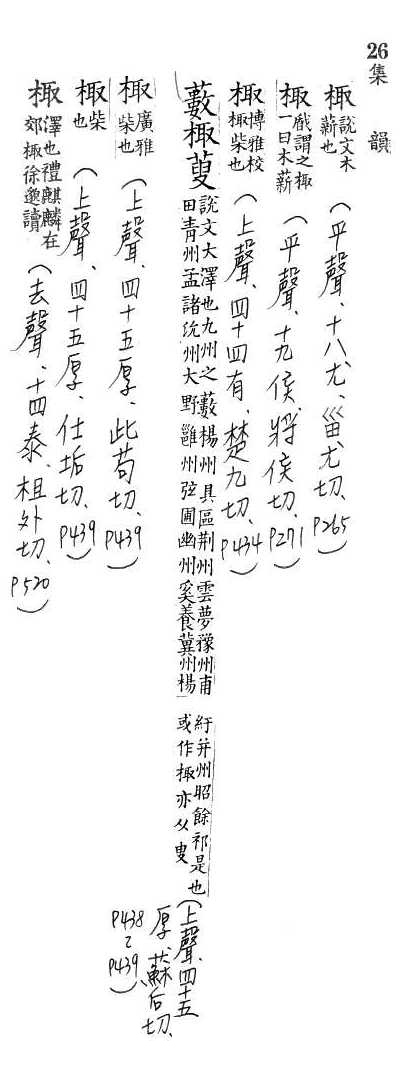 26
集韻
棷說文木薪也（平聲、十八尤、甾尤切、P265）
棷戲謂之棷一曰木薪（平聲、十九侯、將侯切、P271）
棷博雅棷柴也（上聲、四十四有、楚九切、P434）
藪棷䕅說文大澤也九州之藪楊州具區荆州雲夢豫州甫田青州孟諸沇州大野雝州弦圃幽州奚養冀州楊紆并州昭餘祁是也或作棷亦从叟（上聲、四十五厚、蘇后切、P438～P439）
棷廣雅柴也（上聲、四十五厚、此苟切、P439）
棷柴也（上聲、四十五厚、仕垢切、P439）
棷澤也禮麒麟在郊棷徐邈讀（去聲、十四泰、祖外切、P520）